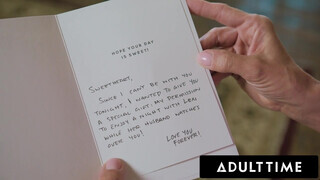 HOPE YOUR DAY
IS SWEET!
SWEETHEART,
SINCE I CAN'T BE WITH YOU
TONIGHT, I WANTED TO GIVE YOU
A SPECIAL GIFT: MY PERMISSION
TO ENJOY A NIGHT WITH
WHILE HER HUSBAND WATCHES
OVER YOU!
LOVE YOU
FOREVER!
ADULT TIME